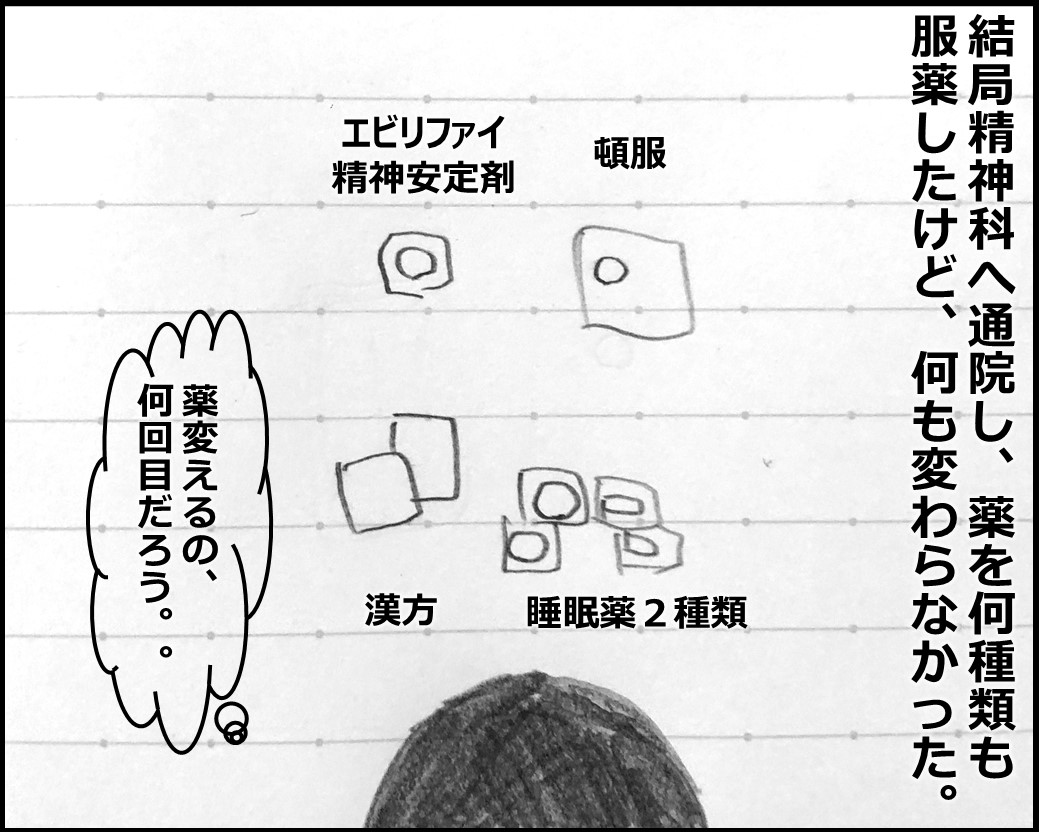 結局精神科へ通院し、薬を何種類も
服薬したけど、何も変わらなかった。
頓服
エビリファイ
精神安定剤
睡眠薬２種類
漢方
薬変えるの、
何回目だろう。。